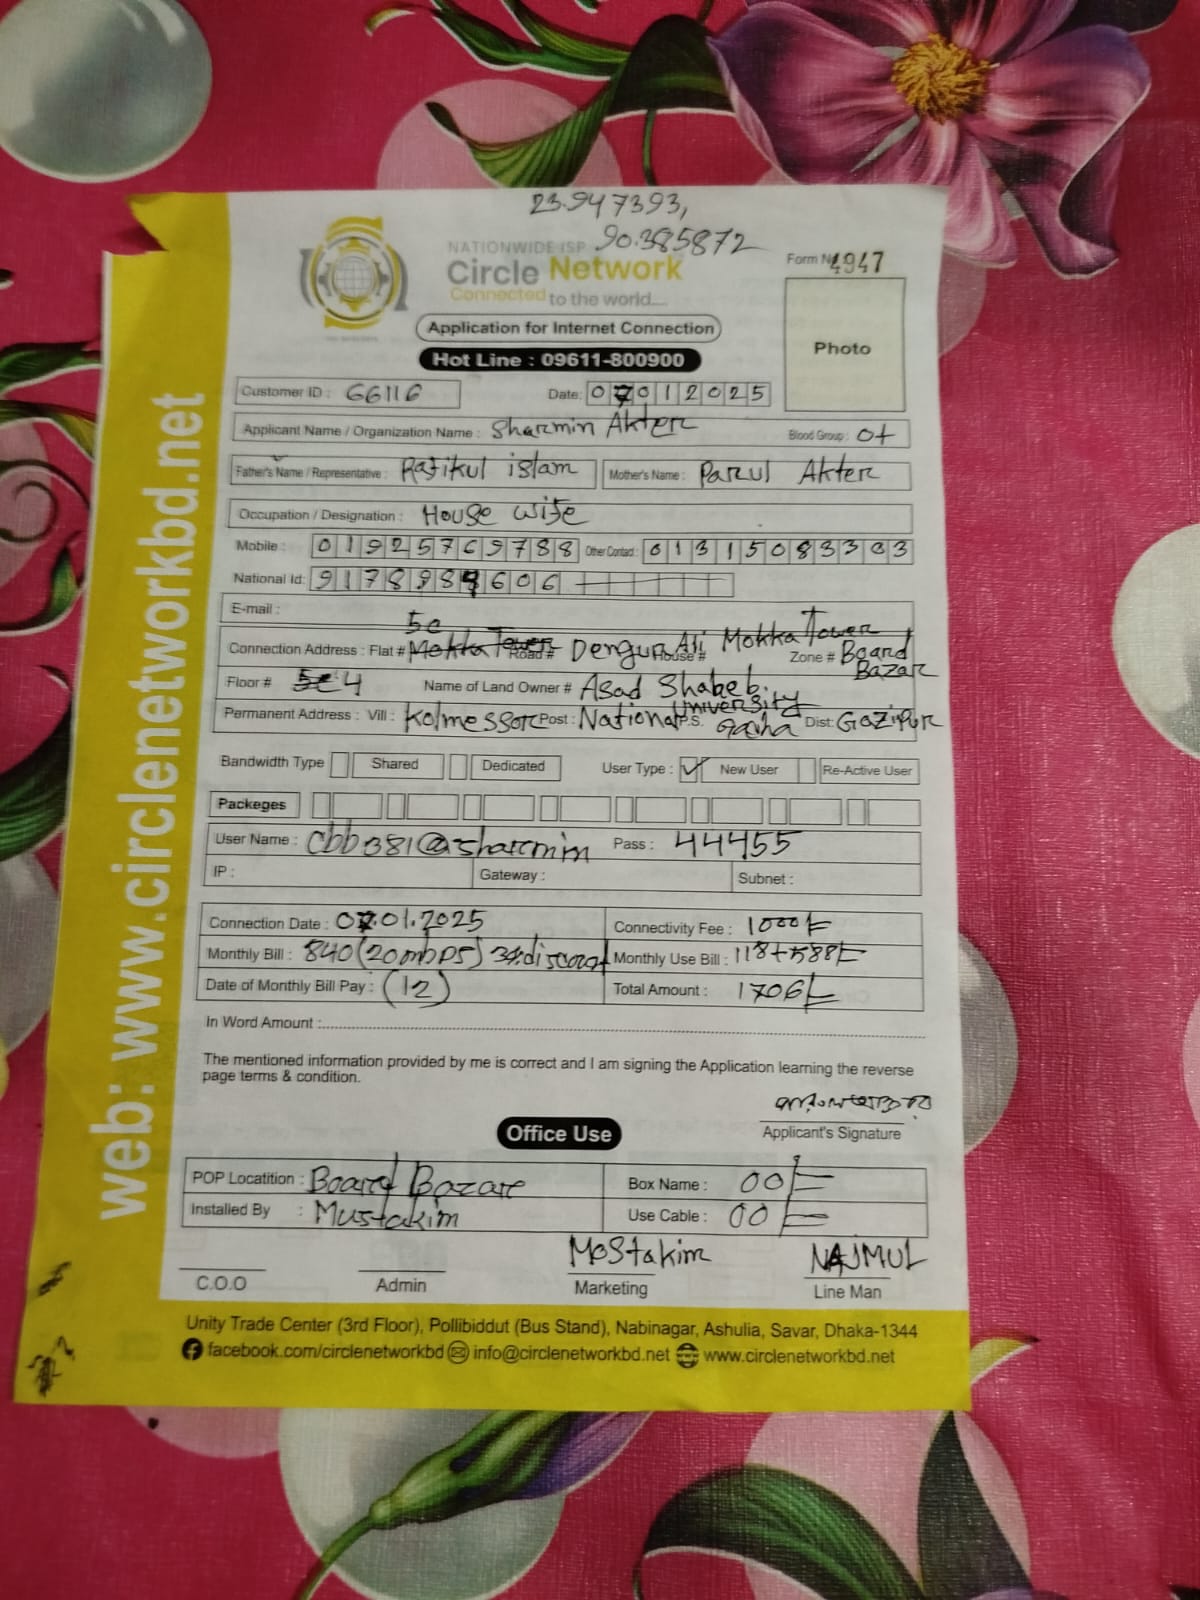 23.947393,
90.385872
NATIONWIDE ISP
Circle Network
Connected to the world....
Form No 4947
Photo
Application for Internet Connection
Hot Line : 09611-800900
Customer ID : 66116 Date: 07012025
Applicant Name / Organization Name : Sharmin Akter Blood Group : O+
Father's Name / Representative : Rafikul islam Mother's Name : Parul Akter
Occupation / Designation : House wife
Mobile : 01925769788 Other Contact : 01315083303
National Id: 9178989606
E-mail :
5c
Connection Address : Flat # Mokka Tower Road # Dengur Ali House # Mokka Tower Zone # Board Bazar
Floor # 4 Name of Land Owner # Asad Shaheb
Permanent Address : Vill : Kolmessor Post : National University P.S. Gacha Dist: Gazipur
Bandwidth Type Shared Dedicated User Type : ✓ New User Re-Active User
Packeges
User Name : cbb381@sharmin Pass : 44455
IP : Gateway : Subnet :
Connection Date : 07.01.2025 Connectivity Fee : 1000/=
Monthly Bill : 840 (20mbps) discount Monthly Use Bill : 118+588/=
Date of Monthly Bill Pay : (12) Total Amount : 1706/=
In Word Amount :
The mentioned information provided by me is correct and I am signing the Application learning the reverse
page terms & condition.
Applicant's Signature
Office Use
POP Locatition : Board Bazar Box Name : 00/=
Installed By : Mustakim Use Cable : 00/=
Mostakim NAJMUL
C.O.O Admin Marketing Line Man
Unity Trade Center (3rd Floor), Pollibiddut (Bus Stand), Nabinagar, Ashulia, Savar, Dhaka-1344
facebook.com/circlenetworkbd info@circlenetworkbd.net www.circlenetworkbd.net
web: www.circlenetworkbd.net